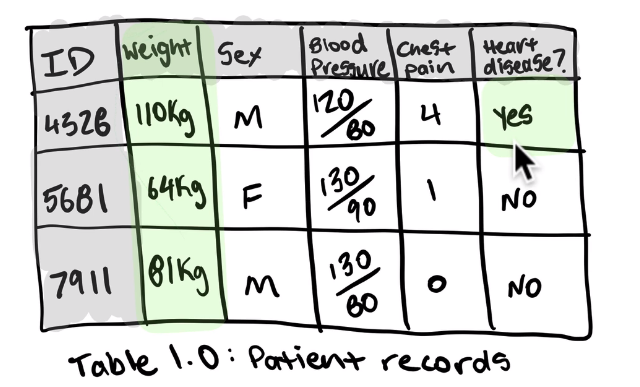 ID Weight Sex Blood Pressure Chest pain Heart disease?
4326 110Kg M 120/80 4 yes
5681 64Kg F 130/90 1 NO
7911 81Kg M 130/80 0 NO
Table 1.0: Patient records